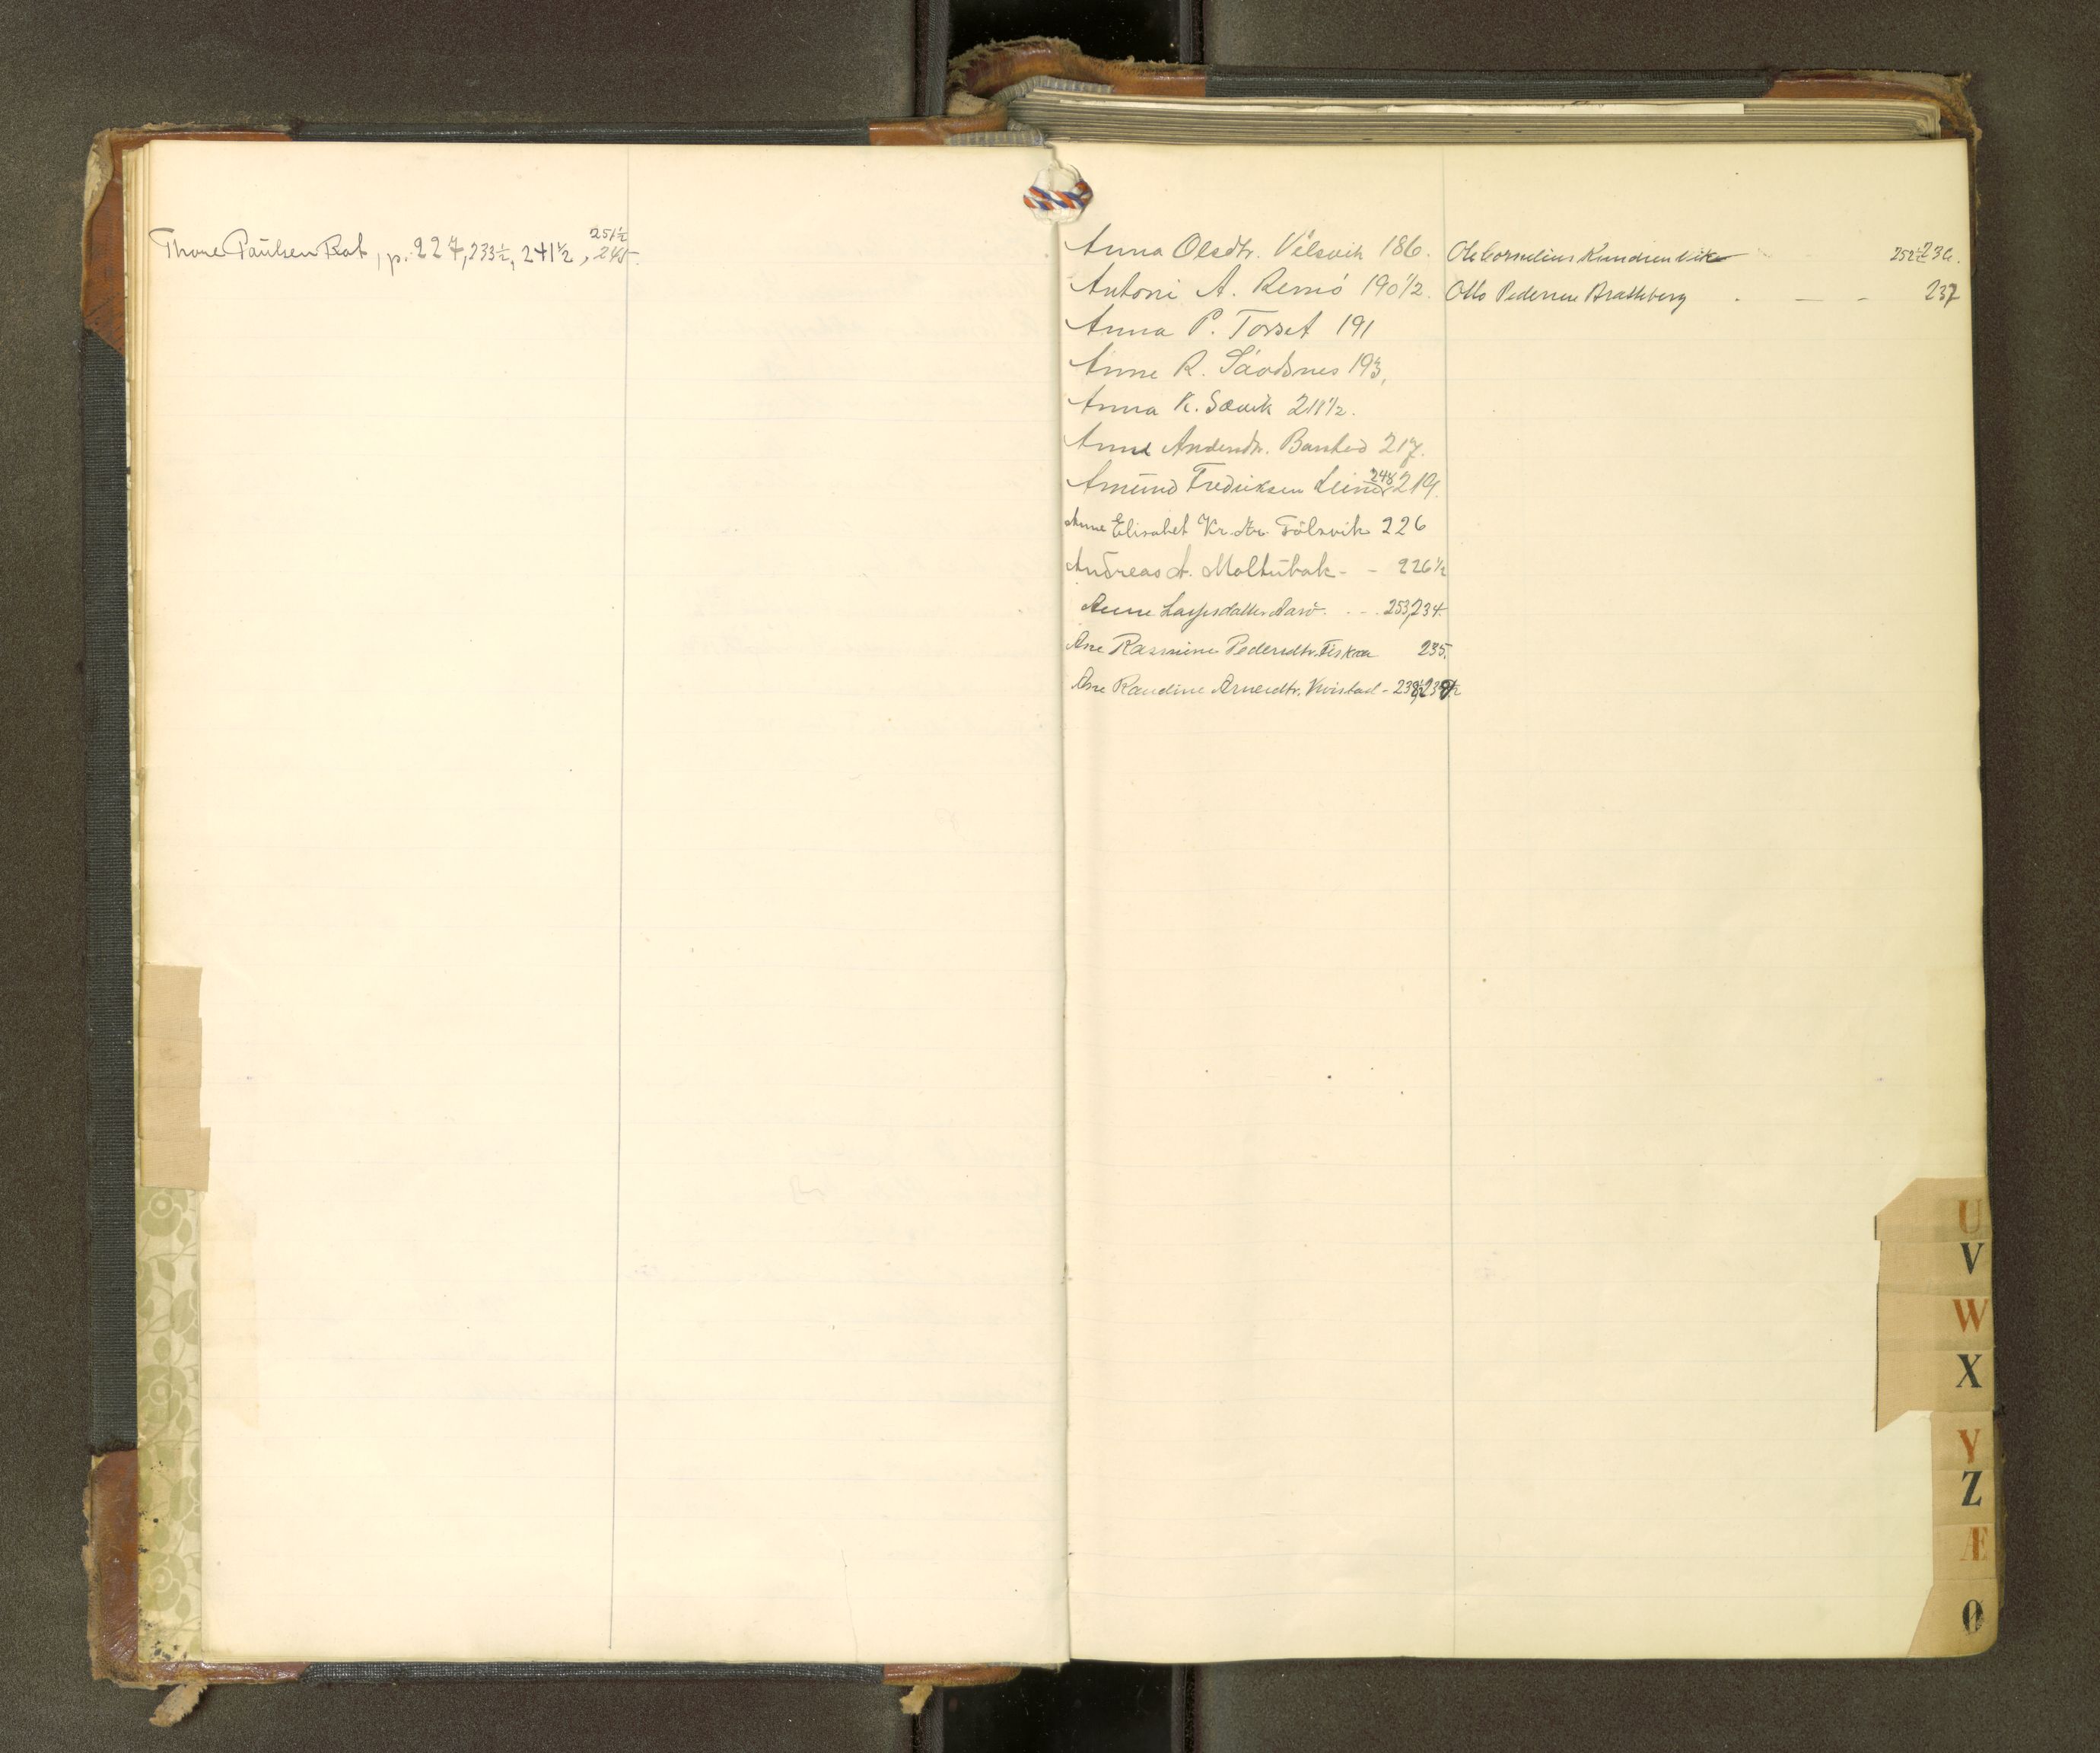 251½
Thore Paulsen Rot, p. 227, 233½, 241½, 245.
Anna Olsdtr. Vilsvik 186.
Antoni A. Remö 190 1/2.
Anna P. Torset 191
Anne R. 193,
Anna K. Sævik 211 1/2.
Anne Andersdtr. 217.
Amund Fredriksen Leine 248 219.
Anne Elisabet Kr.dtr. 226
Andreas A. Moltubak - - 226 1/2
Anne Larsdatter - - - 253, 234.
Ane Rasmine Pedersdtr. Fiskaa 235.
Ane Raudine Arnesdtr. Kvistad -
Ole Cornelius Knudsen Vik 252½ 236.
Otto Pedersen Bratteberg - - - 237
U
V
W
X
Y
Z
Æ
Ø